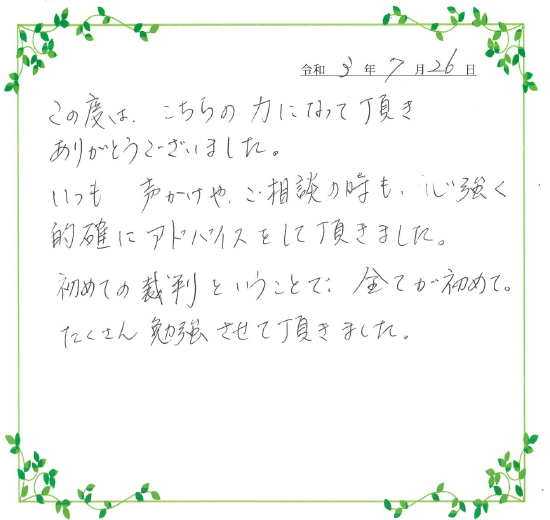 令和 3 年 7 月 26 日
この度は、こちらの力になって頂き
ありがとうございました。
いつも 声かけや、ご相談の時も、心強く
的確にアドバイスをして頂きました。
初めての裁判ということで、全てが初めて。
たくさん勉強させて頂きました。